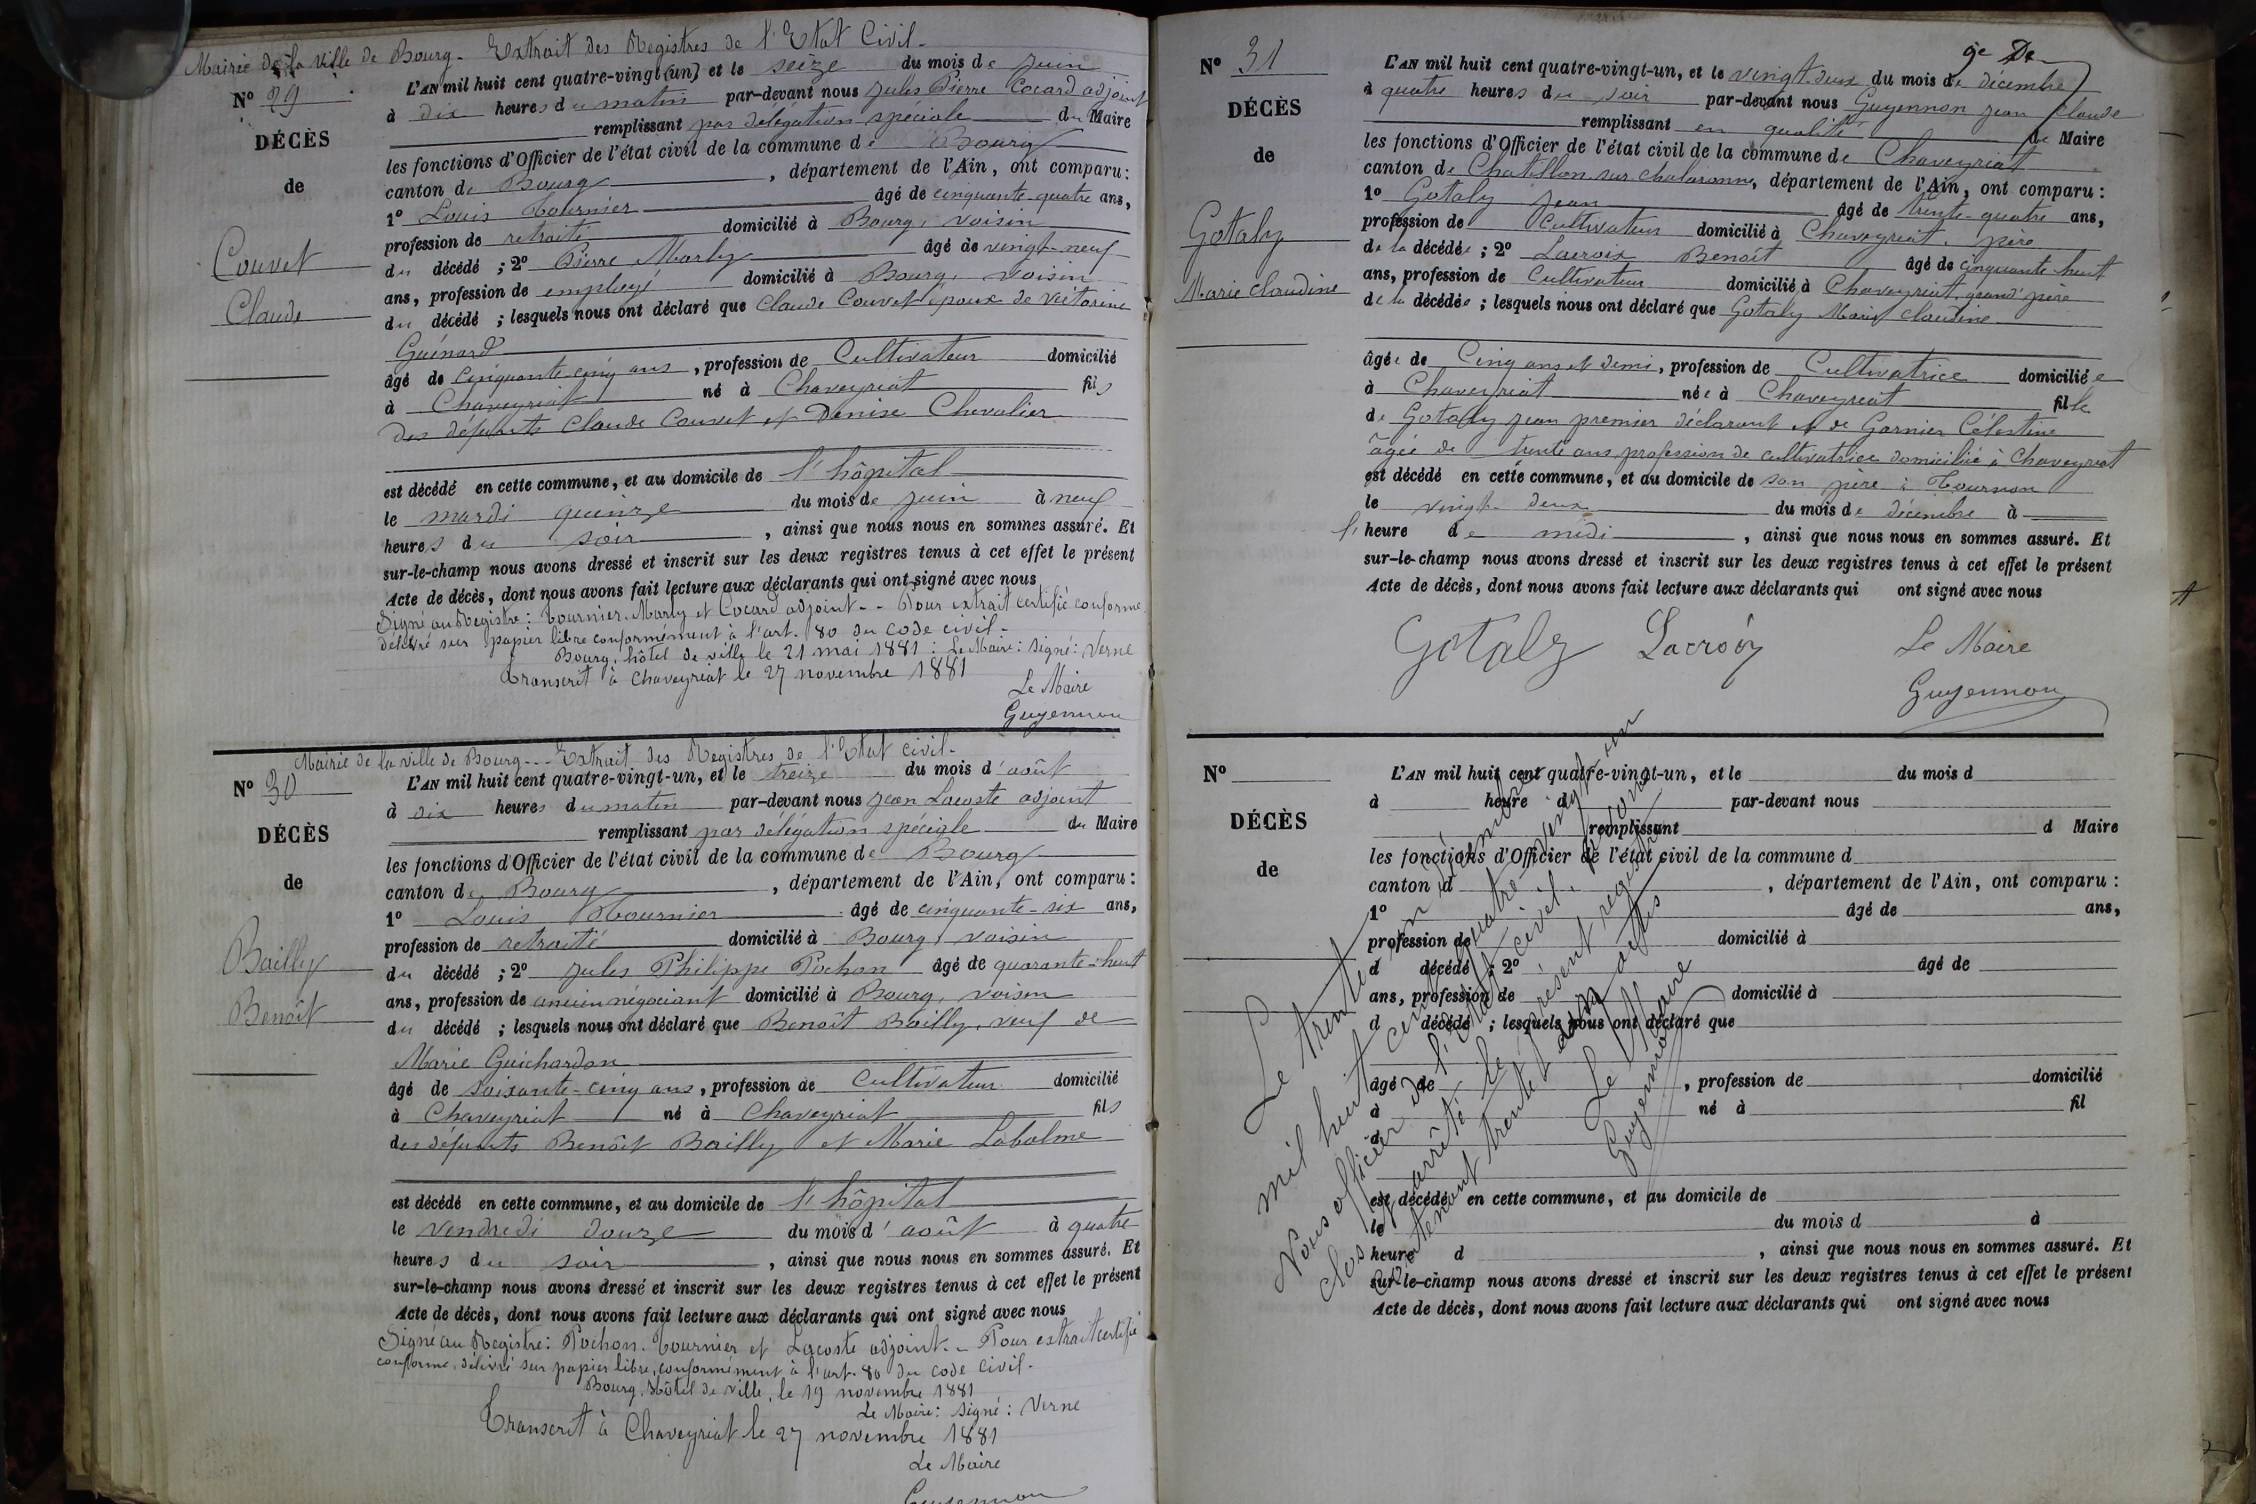 Mairie de la ville de Bourg - Extrait des Registres de l'Etat Civil -
N° 29
DÉCÈS
de
Couvet
Claude
L'AN mil huit cent quatre-vingt (un) et le seize du mois de juin
à dix heures du matin par-devant nous Jules Pierre Cocard adjoint
remplissant par délégation spéciale du Maire
les fonctions d'Officier de l'état civil de la commune de Bourg
canton de Bourg, département de l'Ain, ont comparu :
1° Louis Tournier âgé de cinquante-quatre ans,
profession de retraité domicilié à Bourg, voisin
du décédé ; 2° Pierre Marly âgé de vingt-neuf
ans, profession de employé domicilié à Bourg, voisin
du décédé ; lesquels nous ont déclaré que Claude Couvet époux de Victorine
Guénard
âgé de cinquante-cinq ans, profession de Cultivateur domicilié
à Chaveyriat né à Chaveyriat fils
des défunts Claude Couvet et Denise Chevalier
est décédé en cette commune, et au domicile de l'hôpital
le mardi quinze du mois de juin à neuf
heures du soir, ainsi que nous nous en sommes assuré. Et
sur-le-champ nous avons dressé et inscrit sur les deux registres tenus à cet effet le présent
Acte de décès, dont nous avons fait lecture aux déclarants qui ont signé avec nous
Signé au Registre : Tournier. Marly et Cocard adjoint - - Pour extrait certifié conforme
délivré sur papier libre conformément à l'art. 80 du code civil -
Bourg, hôtel de ville le 21 mai 1881 : Le Maire : signé : Verne
Transcrit à Chaveyriat le 27 novembre 1881
Le Maire
Guyennon
Mairie de la ville de Bourg - - - Extrait des Registres de l'Etat civil -
N° 30
DÉCÈS
de
Bailly
Benoît
L'AN mil huit cent quatre-vingt-un, et le treize du mois d'août
à dix heures du matin par-devant nous Jean Lacoste adjoint
remplissant par délégation spéciale du Maire
les fonctions d'Officier de l'état civil de la commune de Bourg
canton de Bourg, département de l'Ain, ont comparu :
1° Louis Tournier âgé de cinquante-six ans,
profession de retraité domicilié à Bourg, voisin
du décédé ; 2° Jules Philippe Pochon âgé de quarante-huit
ans, profession de ancien négociant domicilié à Bourg, voisin
du décédé ; lesquels nous ont déclaré que Benoît Bailly, veuf de
Marie Guichardon
âgé de soixante-cinq ans, profession de cultivateur domicilié
à Chaveyriat né à Chaveyriat fils
des défunts Benoît Bailly et Marie Labalme
est décédé en cette commune, et au domicile de l'hôpital
le vendredi douze du mois d'août à quatre
heures du soir, ainsi que nous nous en sommes assuré. Et
sur-le-champ nous avons dressé et inscrit sur les deux registres tenus à cet effet le présent
Acte de décès, dont nous avons fait lecture aux déclarants qui ont signé avec nous
Signé au Registre : Pochon. Tournier et Lacoste adjoint. - Pour extrait certifié
conforme, délivré sur papier libre, conformément à l'art. 80 du code civil -
Bourg, Hôtel de ville, le 19 novembre 1881
Le Maire : signé : Verne
Transcrit à Chaveyriat le 27 novembre 1881
Le Maire
Guyennon
9e De
N° 31
DÉCÈS
de
Gotaly
Marie Claudine
L'AN mil huit cent quatre-vingt-un, et le vingt-deux du mois de décembre
à quatre heures du soir par-devant nous Guyennon Jean Claude
remplissant en qualité de Maire
les fonctions d'Officier de l'état civil de la commune de Chaveyriat
canton de Chatillon sur chalaronne, département de l'Ain, ont comparu :
1° Gotaly Jean âgé de trente-quatre ans,
profession de Cultivateur domicilié à Chaveyriat, père
de la décédée ; 2° Lacroix Benoît âgé de cinquante huit
ans, profession de Cultivateur domicilié à Chaveyriat, grand'père
de la décédée ; lesquels nous ont déclaré que Gotaly Marie Claudine
âgée de Cinq ans et demi, profession de Cultivatrice domiciliée
à Chaveyriat née à Chaveyriat fille
de Gotaly Jean premier déclarant et de Garnier Célestine
âgée de trente ans profession de cultivatrice domiciliée à Chaveyriat
est décédé en cette commune, et au domicile de son père à Tournon
le vingt-deux du mois de décembre à
l'heure de midi, ainsi que nous nous en sommes assuré. Et
sur-le-champ nous avons dressé et inscrit sur les deux registres tenus à cet effet le présent
Acte de décès, dont nous avons fait lecture aux déclarants qui ont signé avec nous
Gotaly Lacroix Le Maire
Guyennon
N°
DÉCÈS
de
L'AN mil huit cent quatre-vingt-un, et le du mois d
à heure d par-devant nous
remplissant d Maire
les fonctions d'Officier de l'état civil de la commune d
canton d, département de l'Ain, ont comparu :
1° âgé de ans,
profession de domicilié à
d décédé ; 2° âgé de
ans, profession de domicilié à
d décédé ; lesquels nous ont déclaré que
âgé de, profession de domicilié
à né à fil
d
est décédé en cette commune, et au domicile de
le du mois d à
heure d, ainsi que nous nous en sommes assuré. Et
sur-le-champ nous avons dressé et inscrit sur les deux registres tenus à cet effet le présent
Acte de décès, dont nous avons fait lecture aux déclarants qui ont signé avec nous
Le trente un décembre
mil huit cent quatre-vingt un
Nous officier de l'état civil, avons
clos et arrêté le présent registre
contenant trente un actes
Le Maire
Guyennon